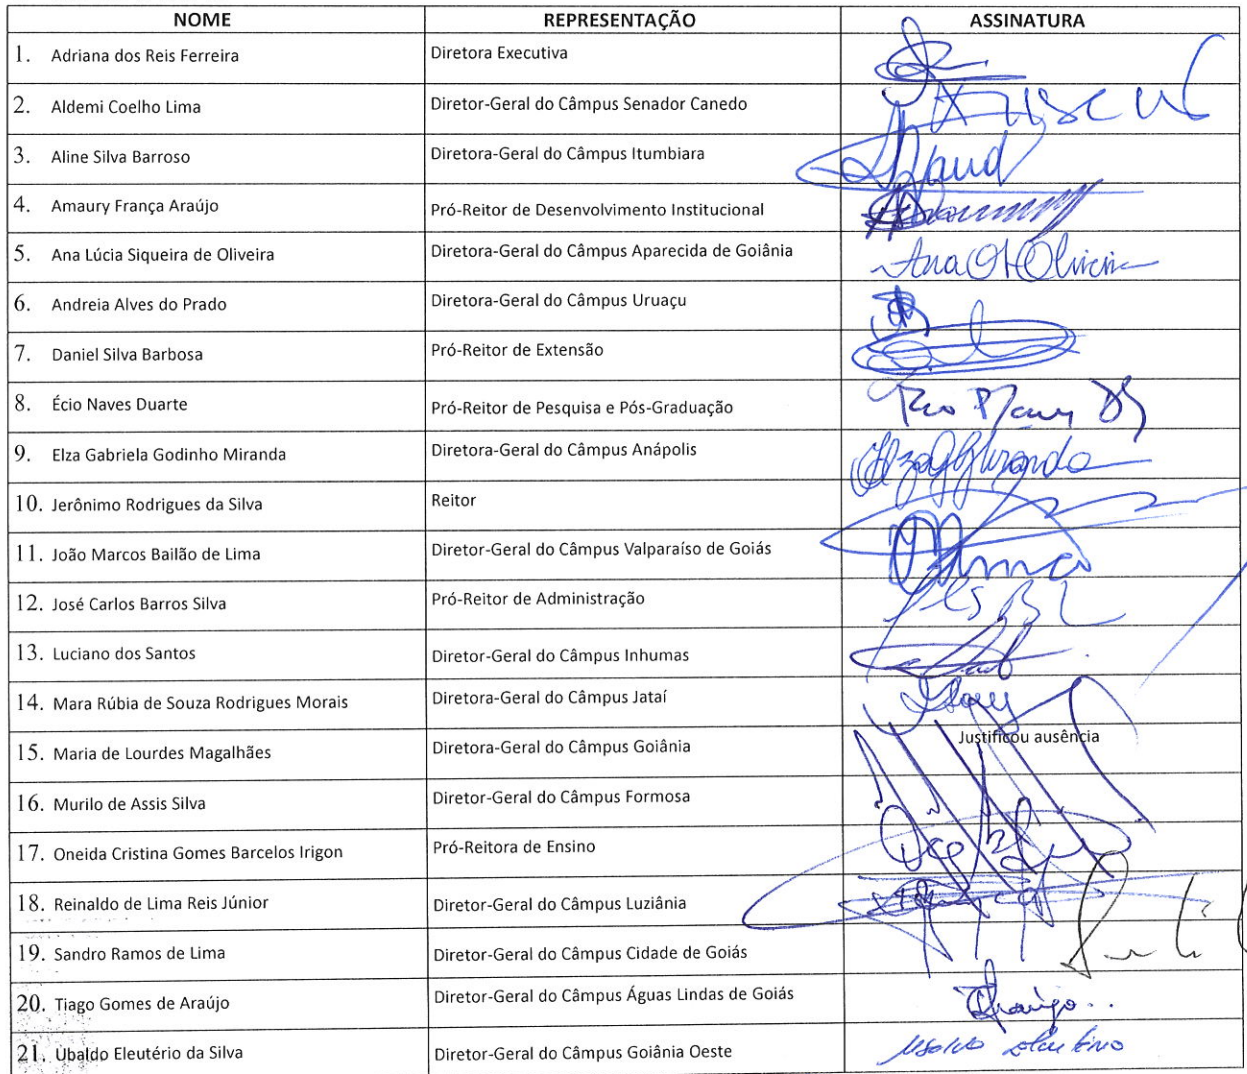 NOME REPRESENTAÇÃO ASSINATURA
1. Adriana dos Reis Ferreira Diretora Executiva
2. Aldemi Coelho Lima Diretor-Geral do Câmpus Senador Canedo
3. Aline Silva Barroso Diretora-Geral do Câmpus Itumbiara
4. Amaury França Araújo Pró-Reitor de Desenvolvimento Institucional
5. Ana Lúcia Siqueira de Oliveira Diretora-Geral do Câmpus Aparecida de Goiânia
6. Andreia Alves do Prado Diretora-Geral do Câmpus Uruaçu
7. Daniel Silva Barbosa Pró-Reitor de Extensão
8. Écio Naves Duarte Pró-Reitor de Pesquisa e Pós-Graduação
9. Elza Gabriela Godinho Miranda Diretora-Geral do Câmpus Anápolis
10. Jerônimo Rodrigues da Silva Reitor
11. João Marcos Bailão de Lima Diretor-Geral do Câmpus Valparaíso de Goiás
12. José Carlos Barros Silva Pró-Reitor de Administração
13. Luciano dos Santos Diretor-Geral do Câmpus Inhumas
14. Mara Rúbia de Souza Rodrigues Morais Diretora-Geral do Câmpus Jataí
15. Maria de Lourdes Magalhães Diretora-Geral do Câmpus Goiânia Justificou ausência
16. Murilo de Assis Silva Diretor-Geral do Câmpus Formosa
17. Oneida Cristina Gomes Barcelos Irigon Pró-Reitora de Ensino
18. Reinaldo de Lima Reis Júnior Diretor-Geral do Câmpus Luziânia
19. Sandro Ramos de Lima Diretor-Geral do Câmpus Cidade de Goiás
20. Tiago Gomes de Araújo Diretor-Geral do Câmpus Águas Lindas de Goiás
21. Ubaldo Eleutério da Silva Diretor-Geral do Câmpus Goiânia Oeste